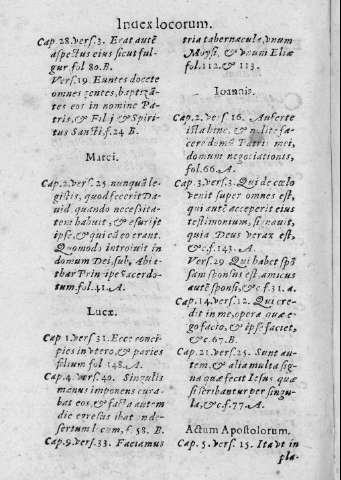 Index locorum.
Cap. 28. vers. 3. Erat autē
aspectus eius sicut ful-
gur fol 80. B.
Vers. 19. Euntes docete
omnes gentes, baptizā-
tes eos in nomine Pa-
tris, & Filij & Spiri-
tus Sancti. f. 24 B.
Marci.
Cap. 2. vers. 25. nunquā le-
gistis, quod fecerit Da-
uid quando necessita-
tem habuit, & esurijt
ipse, & qui cū eo erant.
Quomodo introiuit in
domum Dei, sub Abia-
thar Principe sacerdo-
tum. fol. 41. A.
Lucæ.
Cap. 1. vers. 31. Ecce conci-
pies in vtero, & paries
filium fol 148. A.
Cap. 4. vers. 40. Singulis
manus imponens cura-
bat eos, & facta autem
die egressus ibat in de-
sertum locum, f. 58. B.
Cap. 9. vers. 33. Faciamus
tria tabernacula, vnum
Moysi, & vnum Eliæ
fol. 112. & 113.
Ioannis.
Cap. 2. vers. 16. Auferte
ista hinc, & nolite fa-
cere domū Patris mei,
domum negociationis,
fol. 66. A.
Cap. 3. vers. 3. Qui de cœlo
venit super omnes est,
qui autē acceperit eius
testimonium, signauit,
quia Deus verax est,
& c. f. 143. A.
Vers. 29 Qui habet spō
sam sponsus est, amicus
autē sponsi, & c. f. 31. a.
Cap. 14. vers. 12. Qui cre-
dit in me, opera quæ e-
go facio, & ipse faciet,
& c. 67. B.
Cap. 21. vers. 25. Sunt au-
tem, & alia multa sig-
na quæ fecit Iesus quæ
si scribantur per singu-
la, & c. f. 77. A.
Actum Apostolorum.
Cap. 5. vers. 15. Ita vt in
pla-